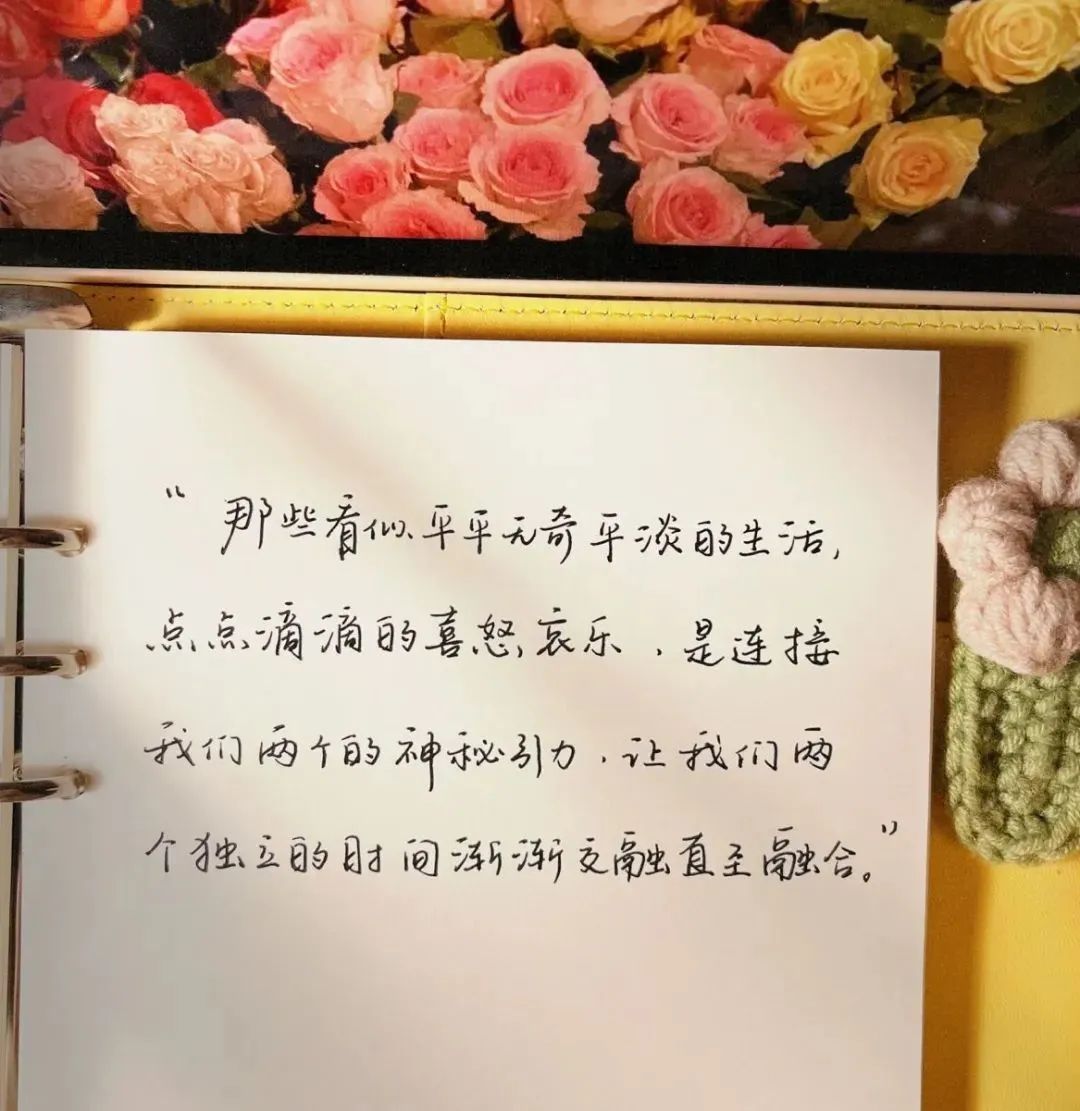 “那些看似平平无奇平淡的生活，
点点滴滴的喜怒哀乐，是连接
我们两个的神秘引力，让我们两
个独立的时间渐渐交融直至融合。”